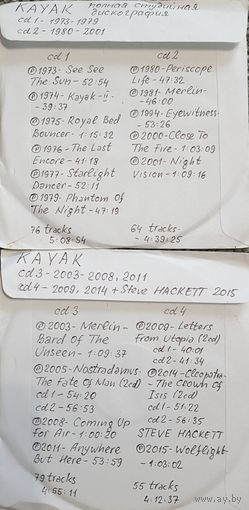 KAYAK полная студийная
дискография
cd1-1973-1979
cd2-1980-2001
cd 1
℗1973-See See
The Sun-52:54
℗1974-Kayak-ii-
-39:37
℗1975-Royal Bed
Bouncer-1:15:32
℗1976-The Last
Encore-41:18
℗1977-Starlight
Dancer-52:11
℗1979-Phantom Of
The Night-47:19
76 tracks
5:08:54
cd 2
℗1980-Periscope
Life-47:32
℗1981-Merlin-
-46:00
℗1994-Eyewitness-
-53:26
℗2000-Close To
The Fire-1:03:09
℗2001-Night
Vision-1:09:16
64 tracks-
-4:39:25
KAYAK
cd3-2003-2008, 2011
cd4-2009, 2014 + Steve HACKETT 2015
cd 3
℗2003-Merlin-
Bard Of The
Unseen-1:09:37
℗2005-Nostradamus-
The Fate Of Man (2cd)
cd1-54:20
cd2-56:53
℗2008-Coming Up
For Air-1:00:20
℗2011-Anywhere
But Here-53:59
79 tracks
4:55:11
cd 4
℗2009-Letters
from Utopia (2cd)
cd1-40:01
cd2-41:34
℗2014-Cleopatra-
-The Crown Of
Isis (2cd)
cd1-51:22
cd2-56:35
STEVE HACKETT
℗2015-Wolflight-
-1:03:02
55 tracks
4:12:37
www.ay.by